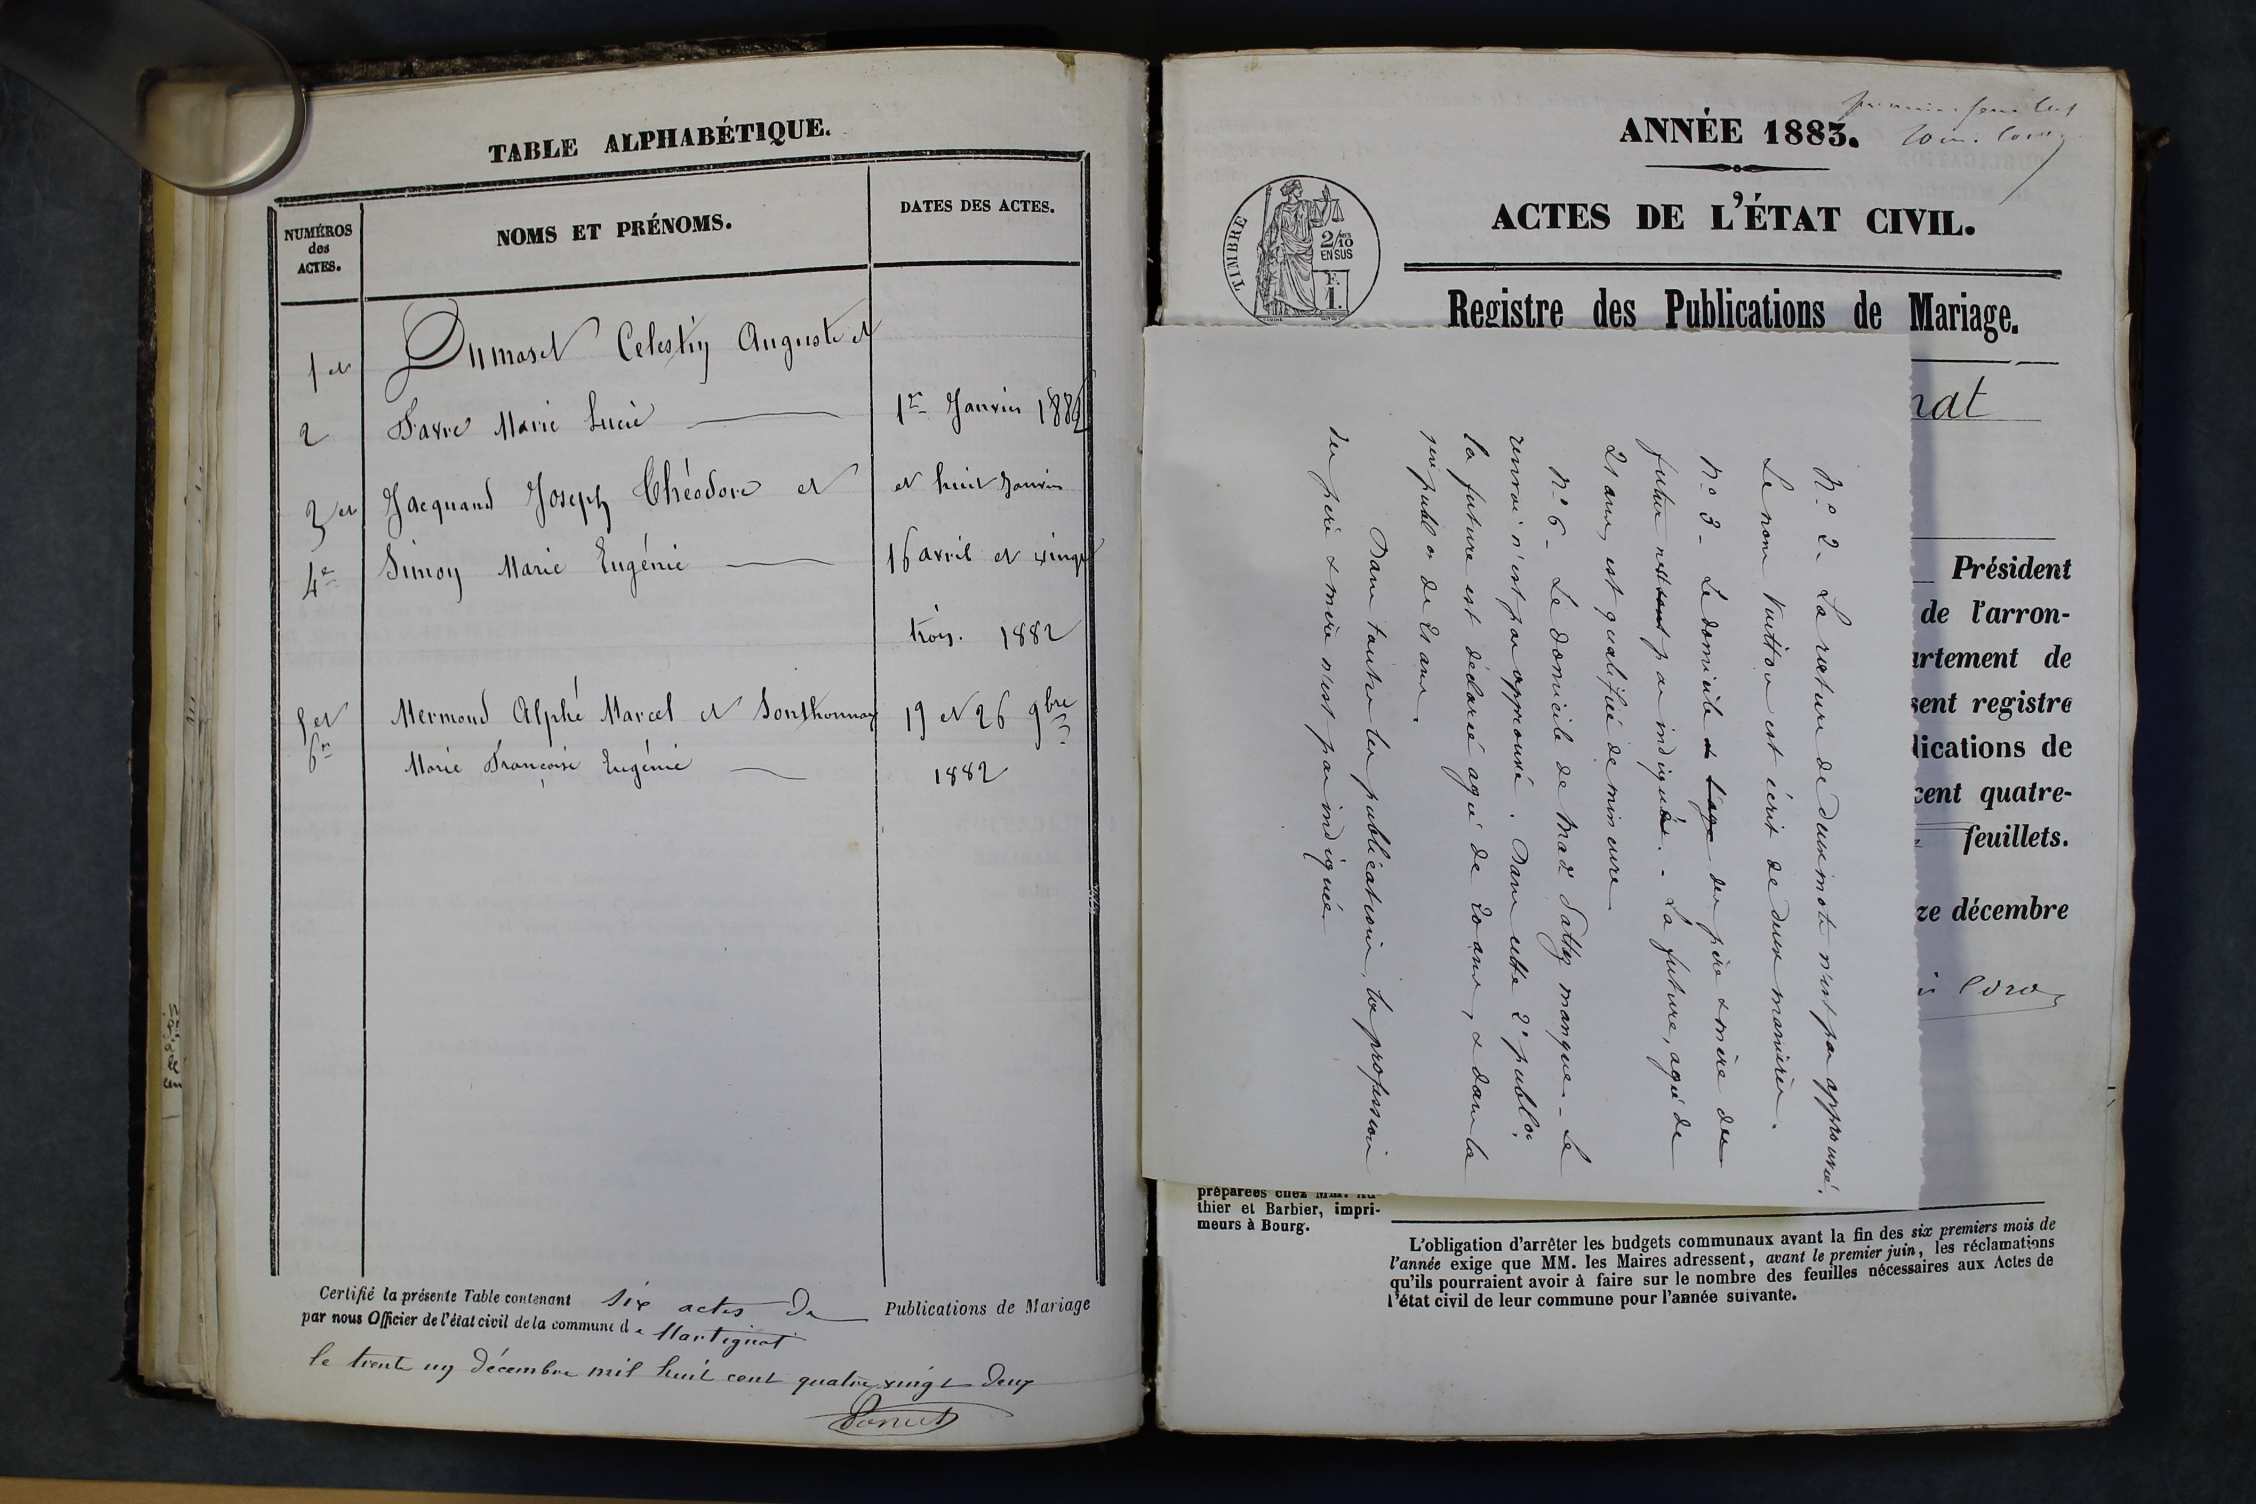 TABLE ALPHABÉTIQUE.
NUMÉROS
des
ACTES.
NOMS ET PRÉNOMS.
DATES DES ACTES.
1 et Dumaset Celestin Auguste et
2 Favre Marie Lucie 1er Janvier 1882
3 et Jacquand Joseph Théodore et et huit Janvier
4e Simon Marie Eugénie 16 avril et vingt
trois. 1882
5 et Mermond Alphé Marcel et Sonthonnax 19 et 26 9bre
6e Marie Françoise Eugénie 1882
Certifié la présente Table contenant six actes de Publications de Mariage
par nous Officier de l'état civil de la commune de Martignat
le trente un décembre mil huit cent quatre vingt deux
ANNÉE 1883.
ACTES DE L'ÉTAT CIVIL.
TIMBRE
2/10
EN SUS
F.
1.
Registre des Publications de Mariage.
nat
Président
de l'arron-
artement de
sent registre
lications de
cent quatre-
feuillets.
ze décembre
N° 2 - La rature de deux mots n'est pas approuvé.
Le nom Vuitton est écrit de deux manières.
N° 3 - Le domicile et l'age des père & mère du
futur n'est pas indiqué. - La future, agée de
21 ans, est qualifiée de mineure.
N° 6 - Le domicile de Mad. manque - Le
renvoi n'est pas approuvé. Dans cette 2e publon
la future est déclarée agée de 20 ans, & dans la
1ere publon de 21 ans.
Dans toutes les publications, la profession
des père & mère n'est pas indiquée
préparées chez MM. Au-
thier et Barbier, impri-
meurs à Bourg.
L'obligation d'arrêter les budgets communaux avant la fin des six premiers mois de
l'année exige que MM. les Maires adressent, avant le premier juin, les réclamations
qu'ils pourraient avoir à faire sur le nombre des feuilles nécessaires aux Actes de
l'état civil de leur commune pour l'année suivante.